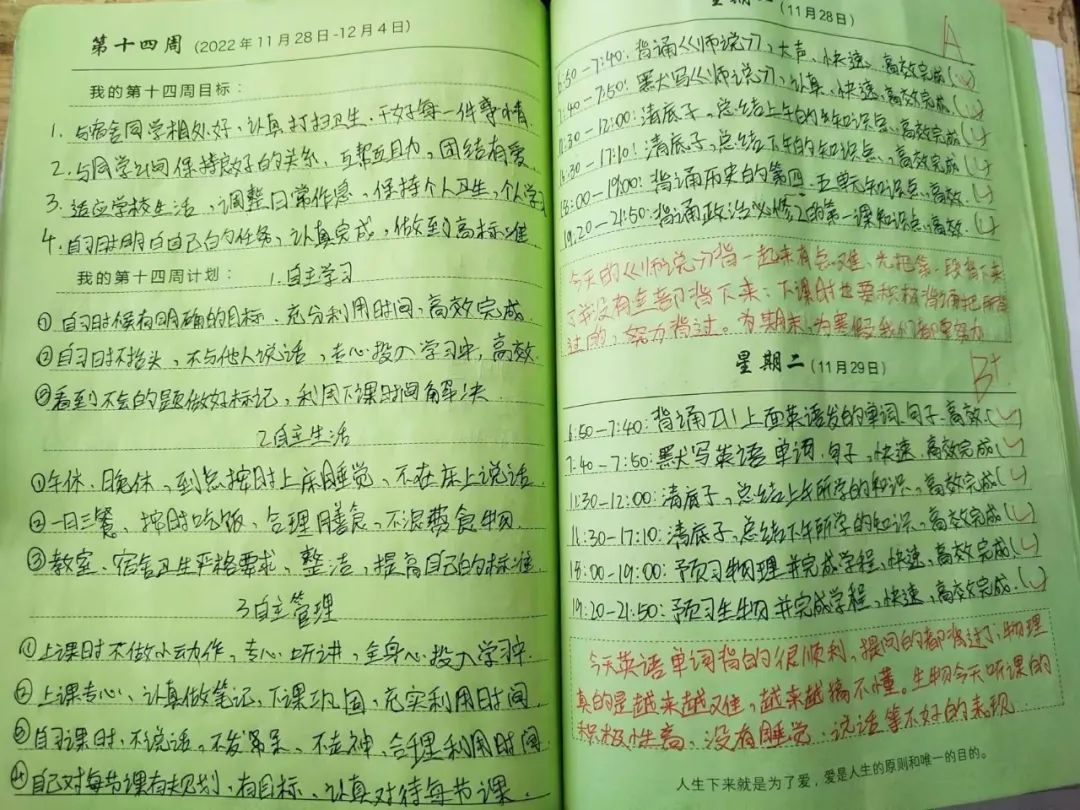 第十四周 (2022年11月28日-12月4日)
我的第十四周目标:
1. 与宿舍同学相处好,认真打扫卫生,干好每一件事情
2. 与同学之间保持良好的关系,互帮互助,团结有爱
3. 适应学校生活,调整日常作息,保持个人卫生,个人学习
4. 自习时明白自己的任务,认真完成,做到高标准
我的第十四周计划: 1.自主学习
① 自习时候有明确的目标,充分利用时间,高效完成.
② 自习时不抬头,不与他人说话,专心投入学习中,高效.
③ 看到不会的题做好标记,利用下课时间解决
2.自主生活
① 午休、晚休,到点按时上床睡觉,不在床上说话.
② 一日三餐,按时吃饭,合理膳食,不浪费食物.
③ 教室、宿舍卫生严格要求,整洁,提高自己的标准.
3.自主管理
① 上课时不做小动作,专心听讲,全身心投入学习中.
② 上课专心、认真做笔记,下课巩固,充实利用时间.
③ 自习课时,不说话,不发呆,不走神,合理利用时间
④ 自己对每节课有规划,有目标,认真对待每节课.
(11月28日)
A
6:50-7:40:背诵《师说》,大声、快速、高效完成(✓)
7:40-7:50:默写《师说》,认真、快速、高效完成(✓)
11:30-12:00:清底子,总结上午的知识点,高效完成(✓)
16:30-17:10:清底子,总结下午的知识点,高效完成(✓)
18:00-19:00:背诵历史的第四、五单元知识点,高效.(✓)
19:20-21:50:背诵政治必修2的第一课知识点,高效.(✓)
今天的《师说》背一起来有点难,先把第一段背下来
了并没有全部背下来;下课时也要积极背诵把所背
过的,努力背过。为期末,为寒假我们都要努力
星期二 (11月29日)
B+
6:50-7:40:背诵21上面英语发的单词、句子、高效(✓)
7:40-7:50:默写英语单词、句子,快速、高效完成(✓)
11:30-12:00:清底子,总结上午所学的知识,高效完成(✓)
16:30-17:10:清底子,总结下午所学的知识,高效完成(✓)
18:00-19:00:预习物理并完成学程,快速、高效完成.(✓)
19:20-21:50:预习生物并完成学程,快速,高效完成.(✓)
今天英语单词背的很顺利,提问的都背过了,物理
真的是越来越难,越来越搞不懂。生物今天听课的
积极性高,没有睡觉、说话等不好的表现.
人生下来就是为了爱,爱是人生的原则和唯一的目的。